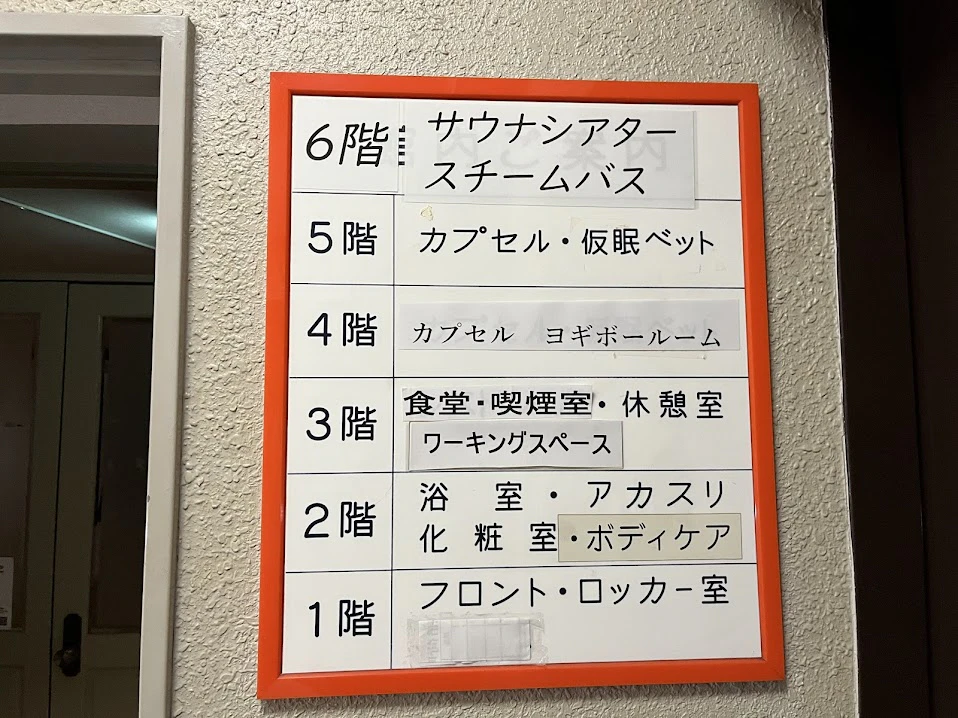 6階 サウナシアター
スチームバス
5階 カプセル・仮眠ベット
4階 カプセル ヨギボールーム
3階 食堂・喫煙室・休憩室
ワーキングスペース
2階 浴室・アカスリ
化粧室・ボディケア
1階 フロント・ロッカー室